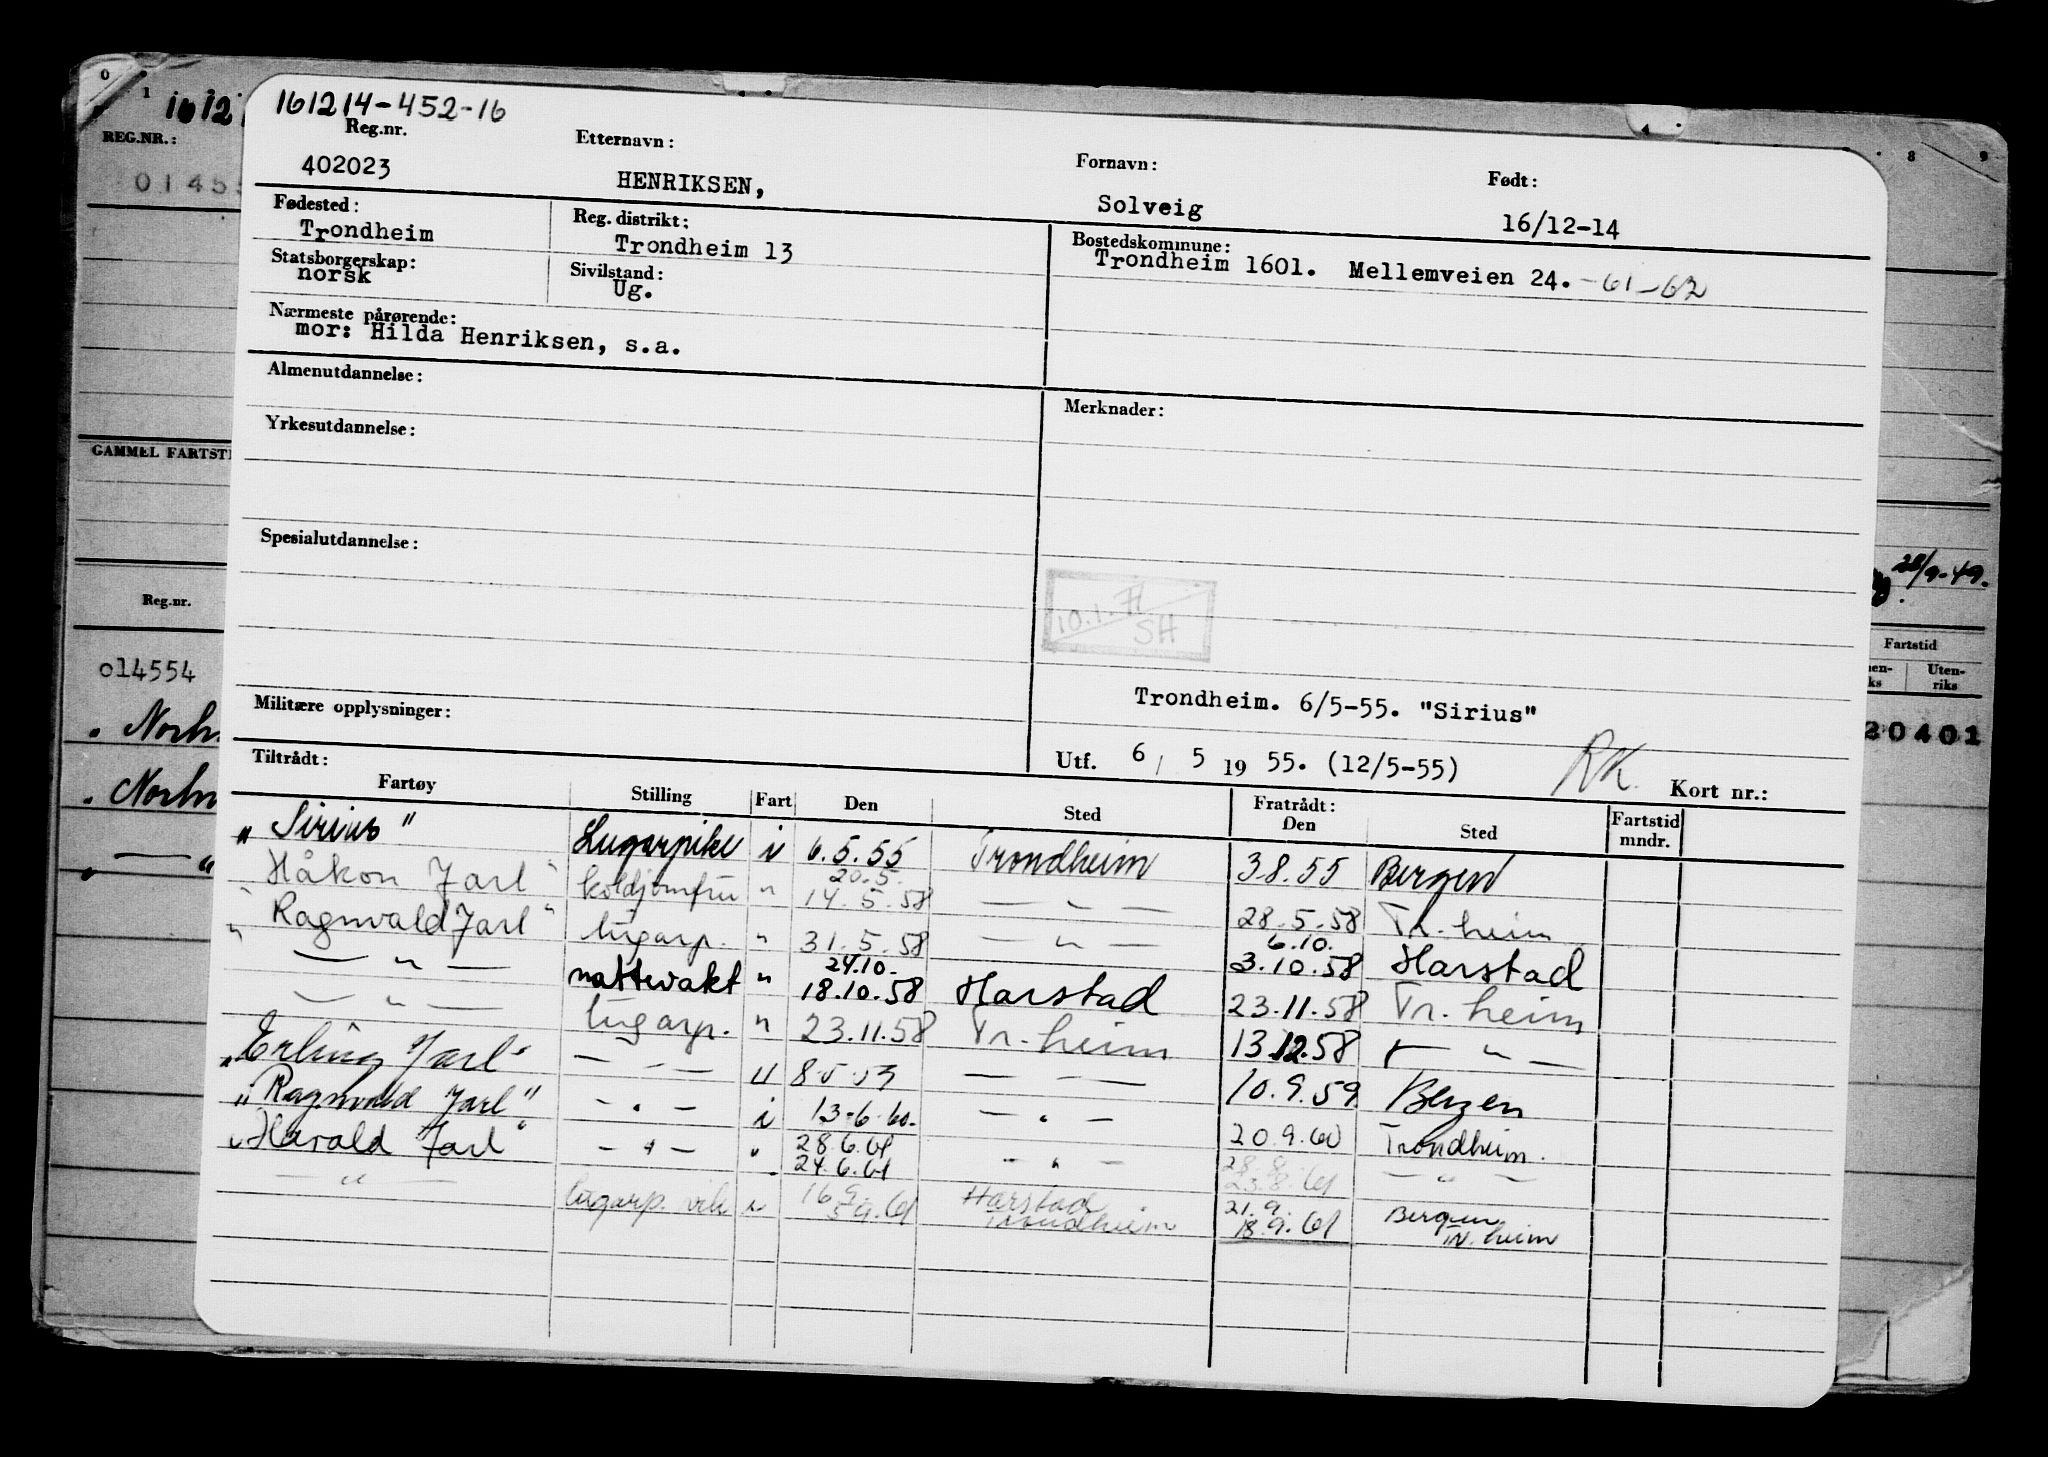 161214-452-16
Reg.nr. Etternavn: Fornavn: Født:
402023 HENRIKSEN, Solveig 16/12-14
Fødested: Reg. distrikt: Bostedskommune:
Trondheim Trondheim 13 Trondheim 1601. Mellemveien 24. -61-62
Statsborgerskap: Sivilstand:
norsk Ug.
Nærmeste pårørende:
mor: Hilda Henriksen, s.a.
Almenutdannelse: Merknader:
Yrkesutdannelse:
Spesialutdannelse:
10.1.71
SH
Militære opplysninger: Trondheim. 6/5-55. "Sirius"
Utf. 6/ 5 19 55. (12/5-55) RK. Kort nr.:
Tiltrådt: Fratrådt:
Fartøy Stilling Fart Den Sted Den Sted Fartstid mndr.
"Sirius" Lugarpike i 6.5.55 Trondheim 3.8.55 Bergen
20.5.
"Håkon Jarl" koldjomfru " 14.5.58 — " — 28.5.58 Tr.heim
6.10.
"Ragnvald Jarl" lugarp. " 31.5.58 — " — 3.10.58 Harstad
24.10.
— " — nattevakt " 18.10.58 Harstad 23.11.58 Tr.heim
— " — lugarp. " 23.11.58 Tr.heim 13.12.58 — " —
"Erling Jarl" — " — " — " — 10.9.59 Bergen
"Ragnvald Jarl" — " — i 13-6-60. — " — 20.9.60 Trondheim.
28.6.61 28.8.
"Harald Jarl" — " — " 24.6.61 — " — 23.8.61 — " —
16.9. Harstad 21.9. Bergen
— " — lugarp. vik i 5.9.61 Trondheim 18.9.61 Tr.heim
0 1 1612
REG.NR.:
01455
GAMMEL FARTSTI
Reg.nr.
014554
" Norh
" Norh
" — "
8 9
28/9-49.
Fartstid
nen-
ks
Uten-
riks
20401